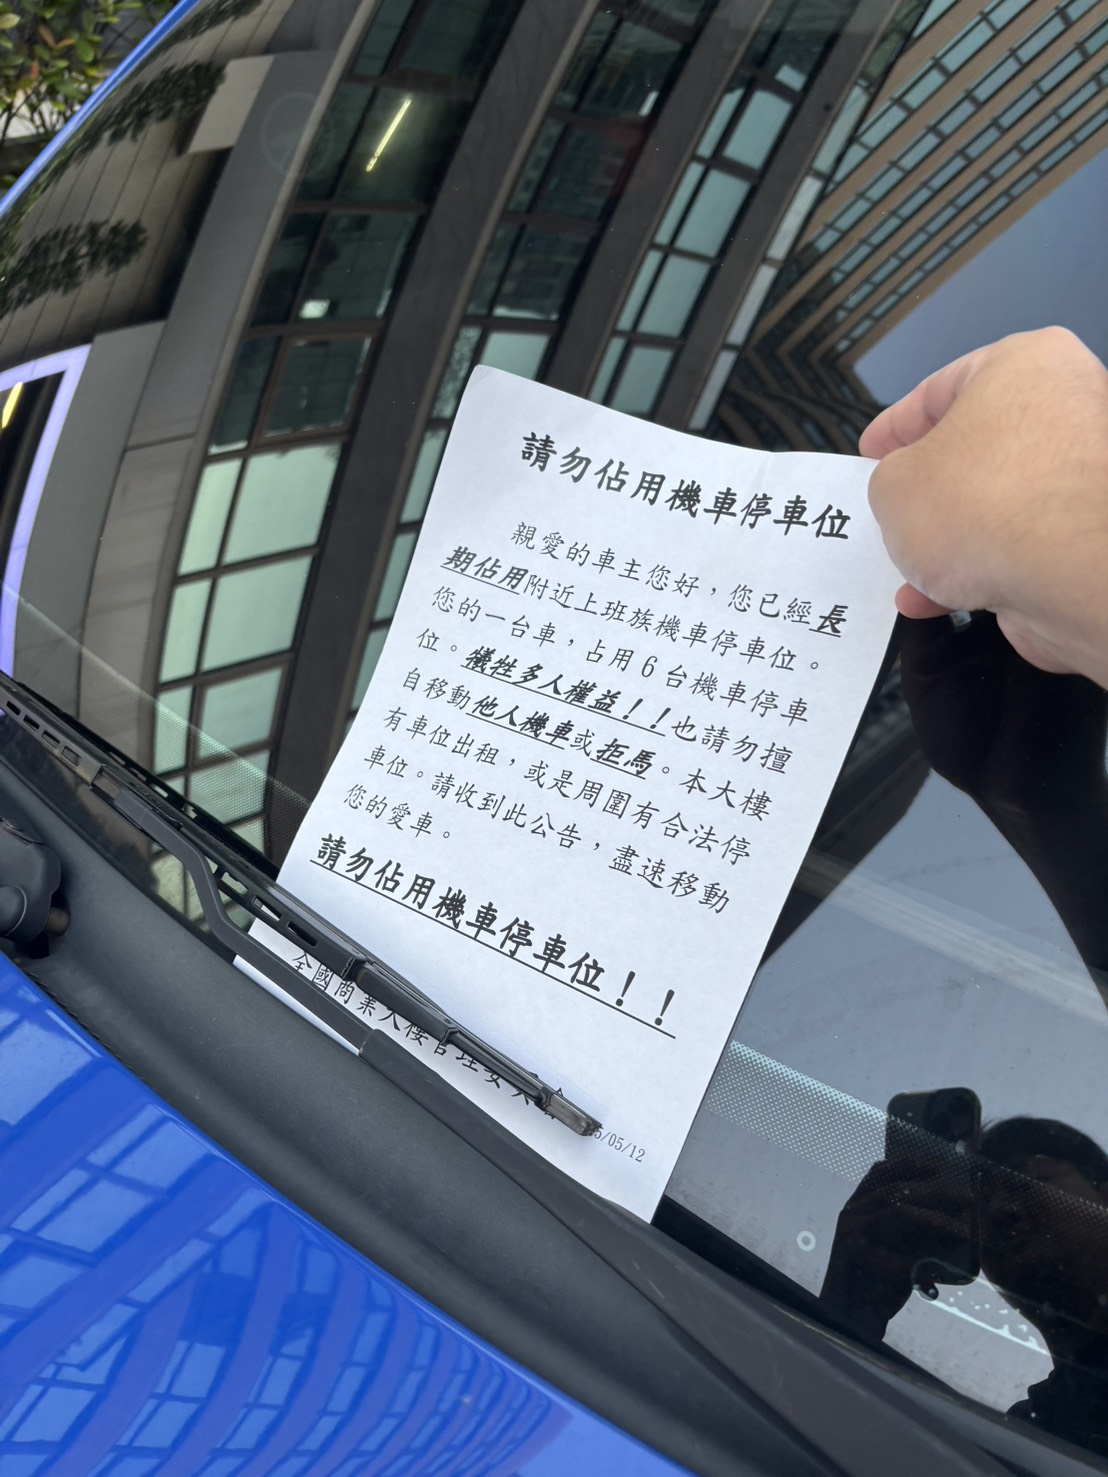 請勿佔用機車停車位
親愛的車主您好，您已經長
期佔用附近上班族機車停車位。
您的一台車，占用6台機車停車
位。犧牲多人權益！！也請勿擅
自移動他人機車或拒馬。本大樓
有車位出租，或是周圍有合法停
車位。請收到此公告，盡速移動
您的愛車。
請勿佔用機車停車位！！
全國商業大樓管理委員會
5/05/12